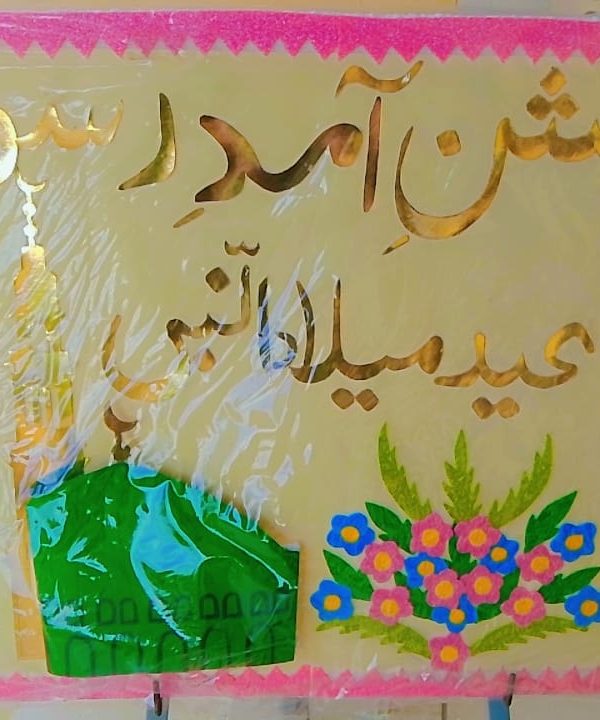 شنِ آمدِ رسو
عید میلادالنّبی